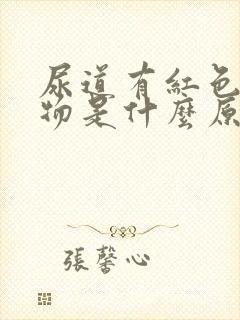 尿道有紅色
物是什麼原
張馨心